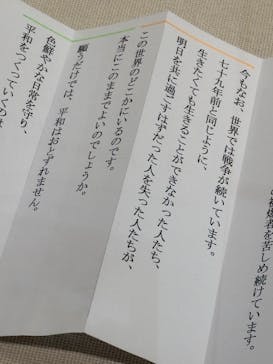 被爆者を苦しめ続けています。
今もなお、世界では戦争が続いています。
七十九年前と同じように、
生きたくても生きることができなかった人たち、
明日を共に過ごすはずだった人を失った人たちが、
この世界のどこかにいるのです。
本当にこのままでよいのでしょうか。
願うだけでは、平和はおとずれません。
色鮮やかな日常を守り、
平和をつくっていくのは